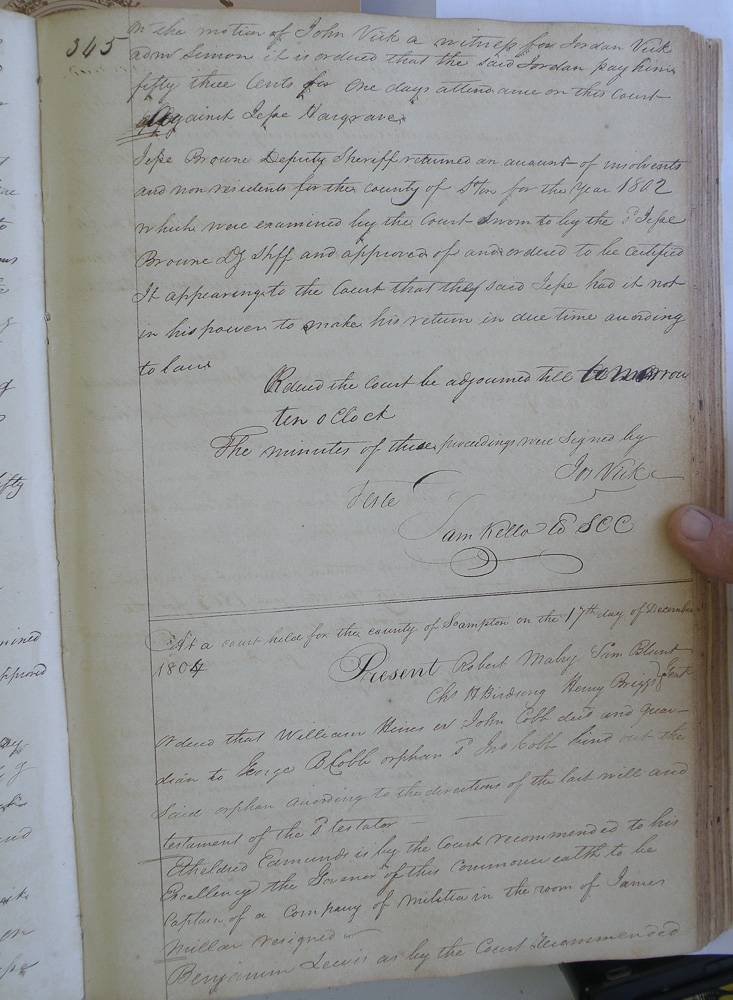 345
On the motion of John Vick a witness for Jordan Vick
admr Simon it is ordered that the said Jordan pay him
fifty three Cents for One days attendance on this Court
against Jesse Hargrave
Jesse Browne Deputy Sheriff returned an account of insolvents
and non residents for the county of Ston for the Year 1802
which were examined by the Court Sworn to by the sd Jesse
Browne Dy Shff and approved of and ordered to be certified
It appearing to the Court that they said Jesse had it not
in his power to make his return in due time according
to law
Ordered the Court be adjourned till tomorrow
ten oClock
The minutes of these proceedings were Signed by
Jos Vick
Teste
Sam Kello SCC
At a court held for the county of Soampton on the 17th day of December
1804
Present Robert Mabry Sam Blunt
Chs H Birdsong Henry Briggs Gent
Ordered that William Hines ex John Cobb decd and guar-
dian to George B Cobb orphan sd Jno Cobb bind out the
Said orphan according to the directions of the last will and
testament of the sd testator
Etheldred Edmunds is by the Court recommended to his
Excellency the Governer of this Commonwealth to be
Captain of a Company of militia in the room of James
Millar resigned
Benjamin Lewis as by the Court Recommended